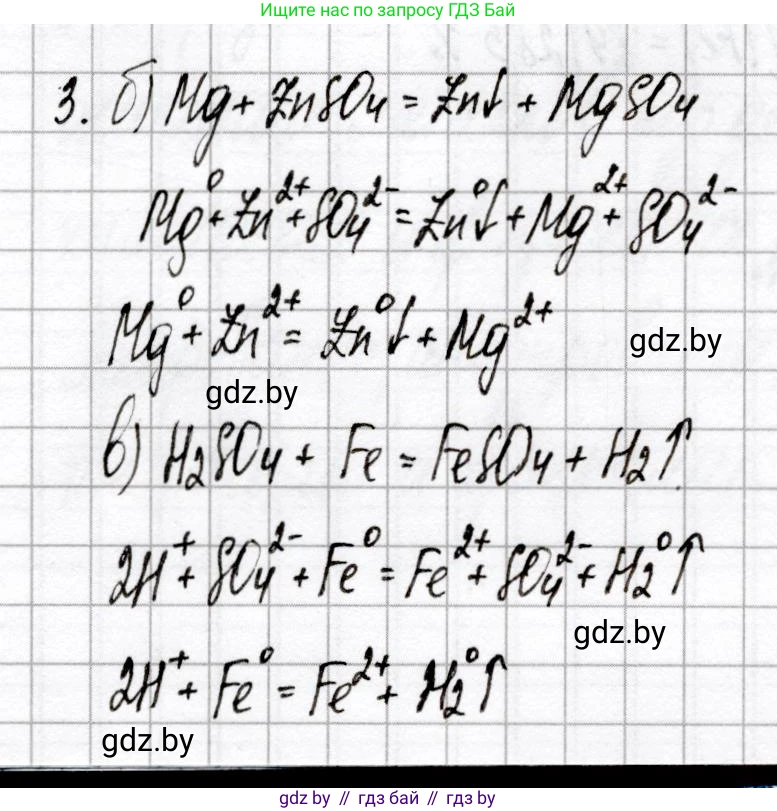 Ищите нас по запросу ГДЗ Бай
3. б) Mg + ZnSO₄ = Zn↓ + MgSO₄
Mg⁰ + Zn²⁺ + SO₄²⁻ = Zn⁰↓ + Mg²⁺ + SO₄²⁻
Mg⁰ + Zn²⁺ = Zn⁰↓ + Mg²⁺
gdz.by
gdz.by
в) H₂SO₄ + Fe = FeSO₄ + H₂↑
2H⁺ + SO₄²⁻ + Fe⁰ = Fe²⁺ + SO₄²⁻ + H₂⁰↑
gdz.by
2H⁺ + Fe⁰ = Fe²⁺ + H₂⁰↑
gdz.by
gdz by // гдз бай // gdz by